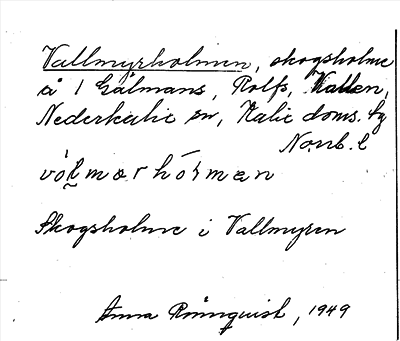 Vallmyrholmen, skogsholme
å / Gålmans, Rolfs, Vallen,
Nederkalix sn, Kalix doms. tg
Norrb. l
vól̬mærhólmæn
Skogsholme i Vallmyren
Anna Rönnquist, 1949